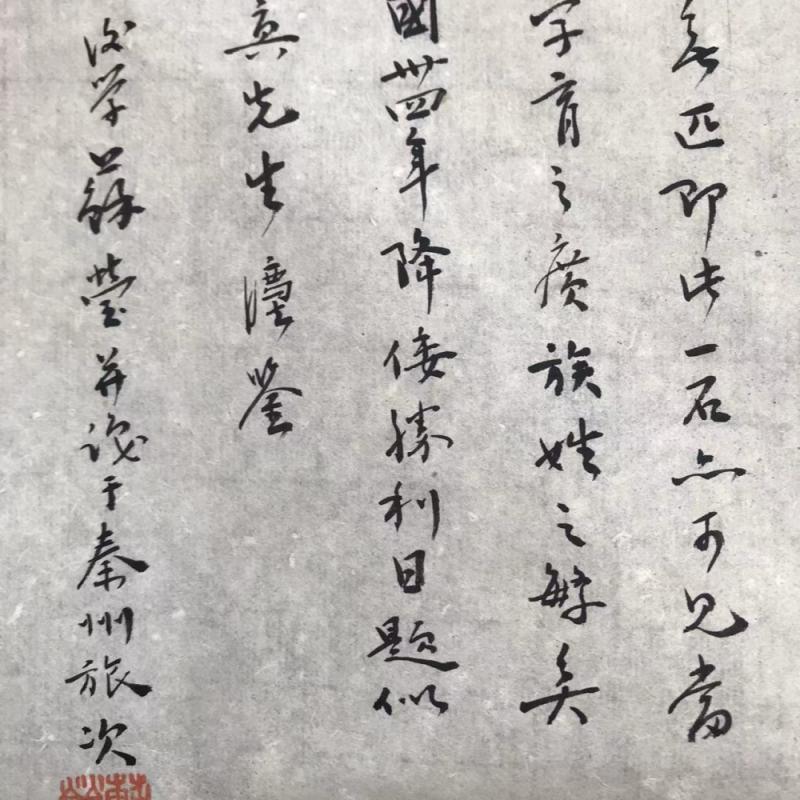 匹即此一石亦可見當
字育之廣族姓之繁矣
國卅四年降倭勝利日題似
真先生鑒
後学蘇瑩并識于秦州旅次